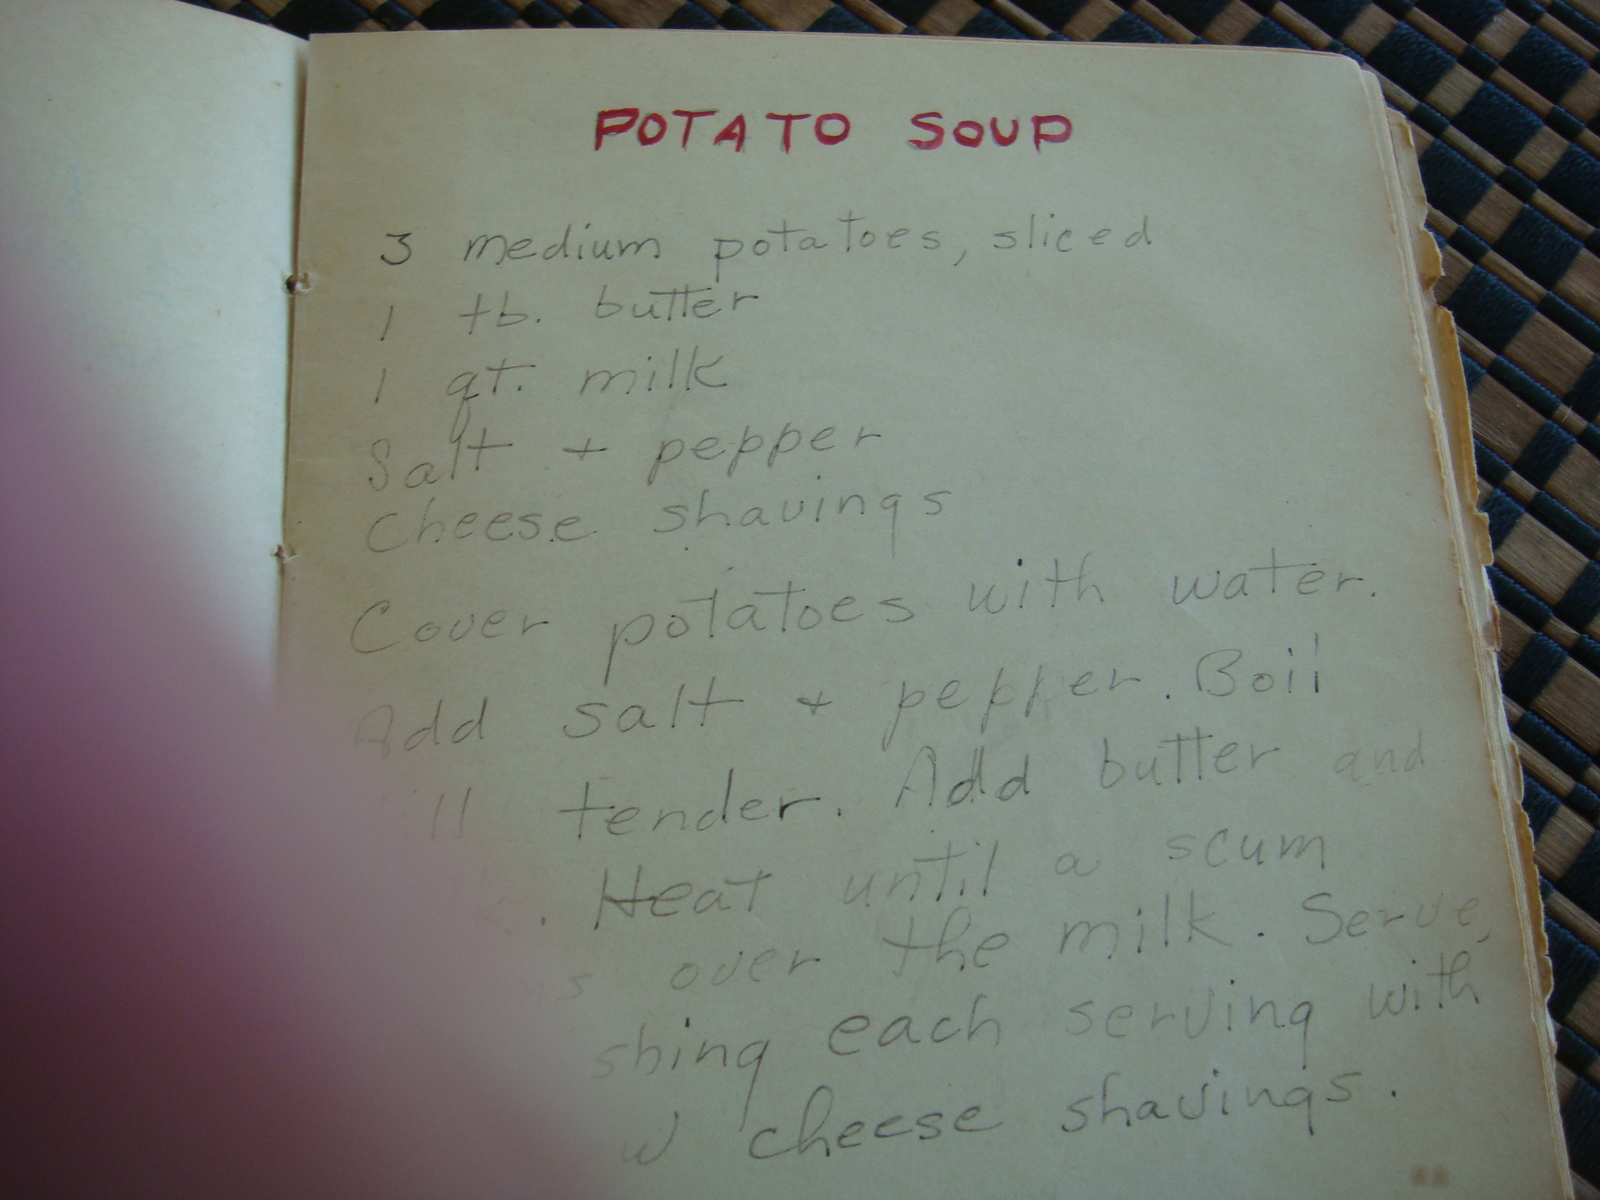 POTATO SOUP
3 medium potatoes, sliced
1 tb. butter
1 qt. milk
Salt + pepper
Cheese shavings
Cover potatoes with water.
Add salt + pepper. Boil
tender. Add butter and
Heat until a scum
over the milk. Serve,
each serving with
cheese shavings.